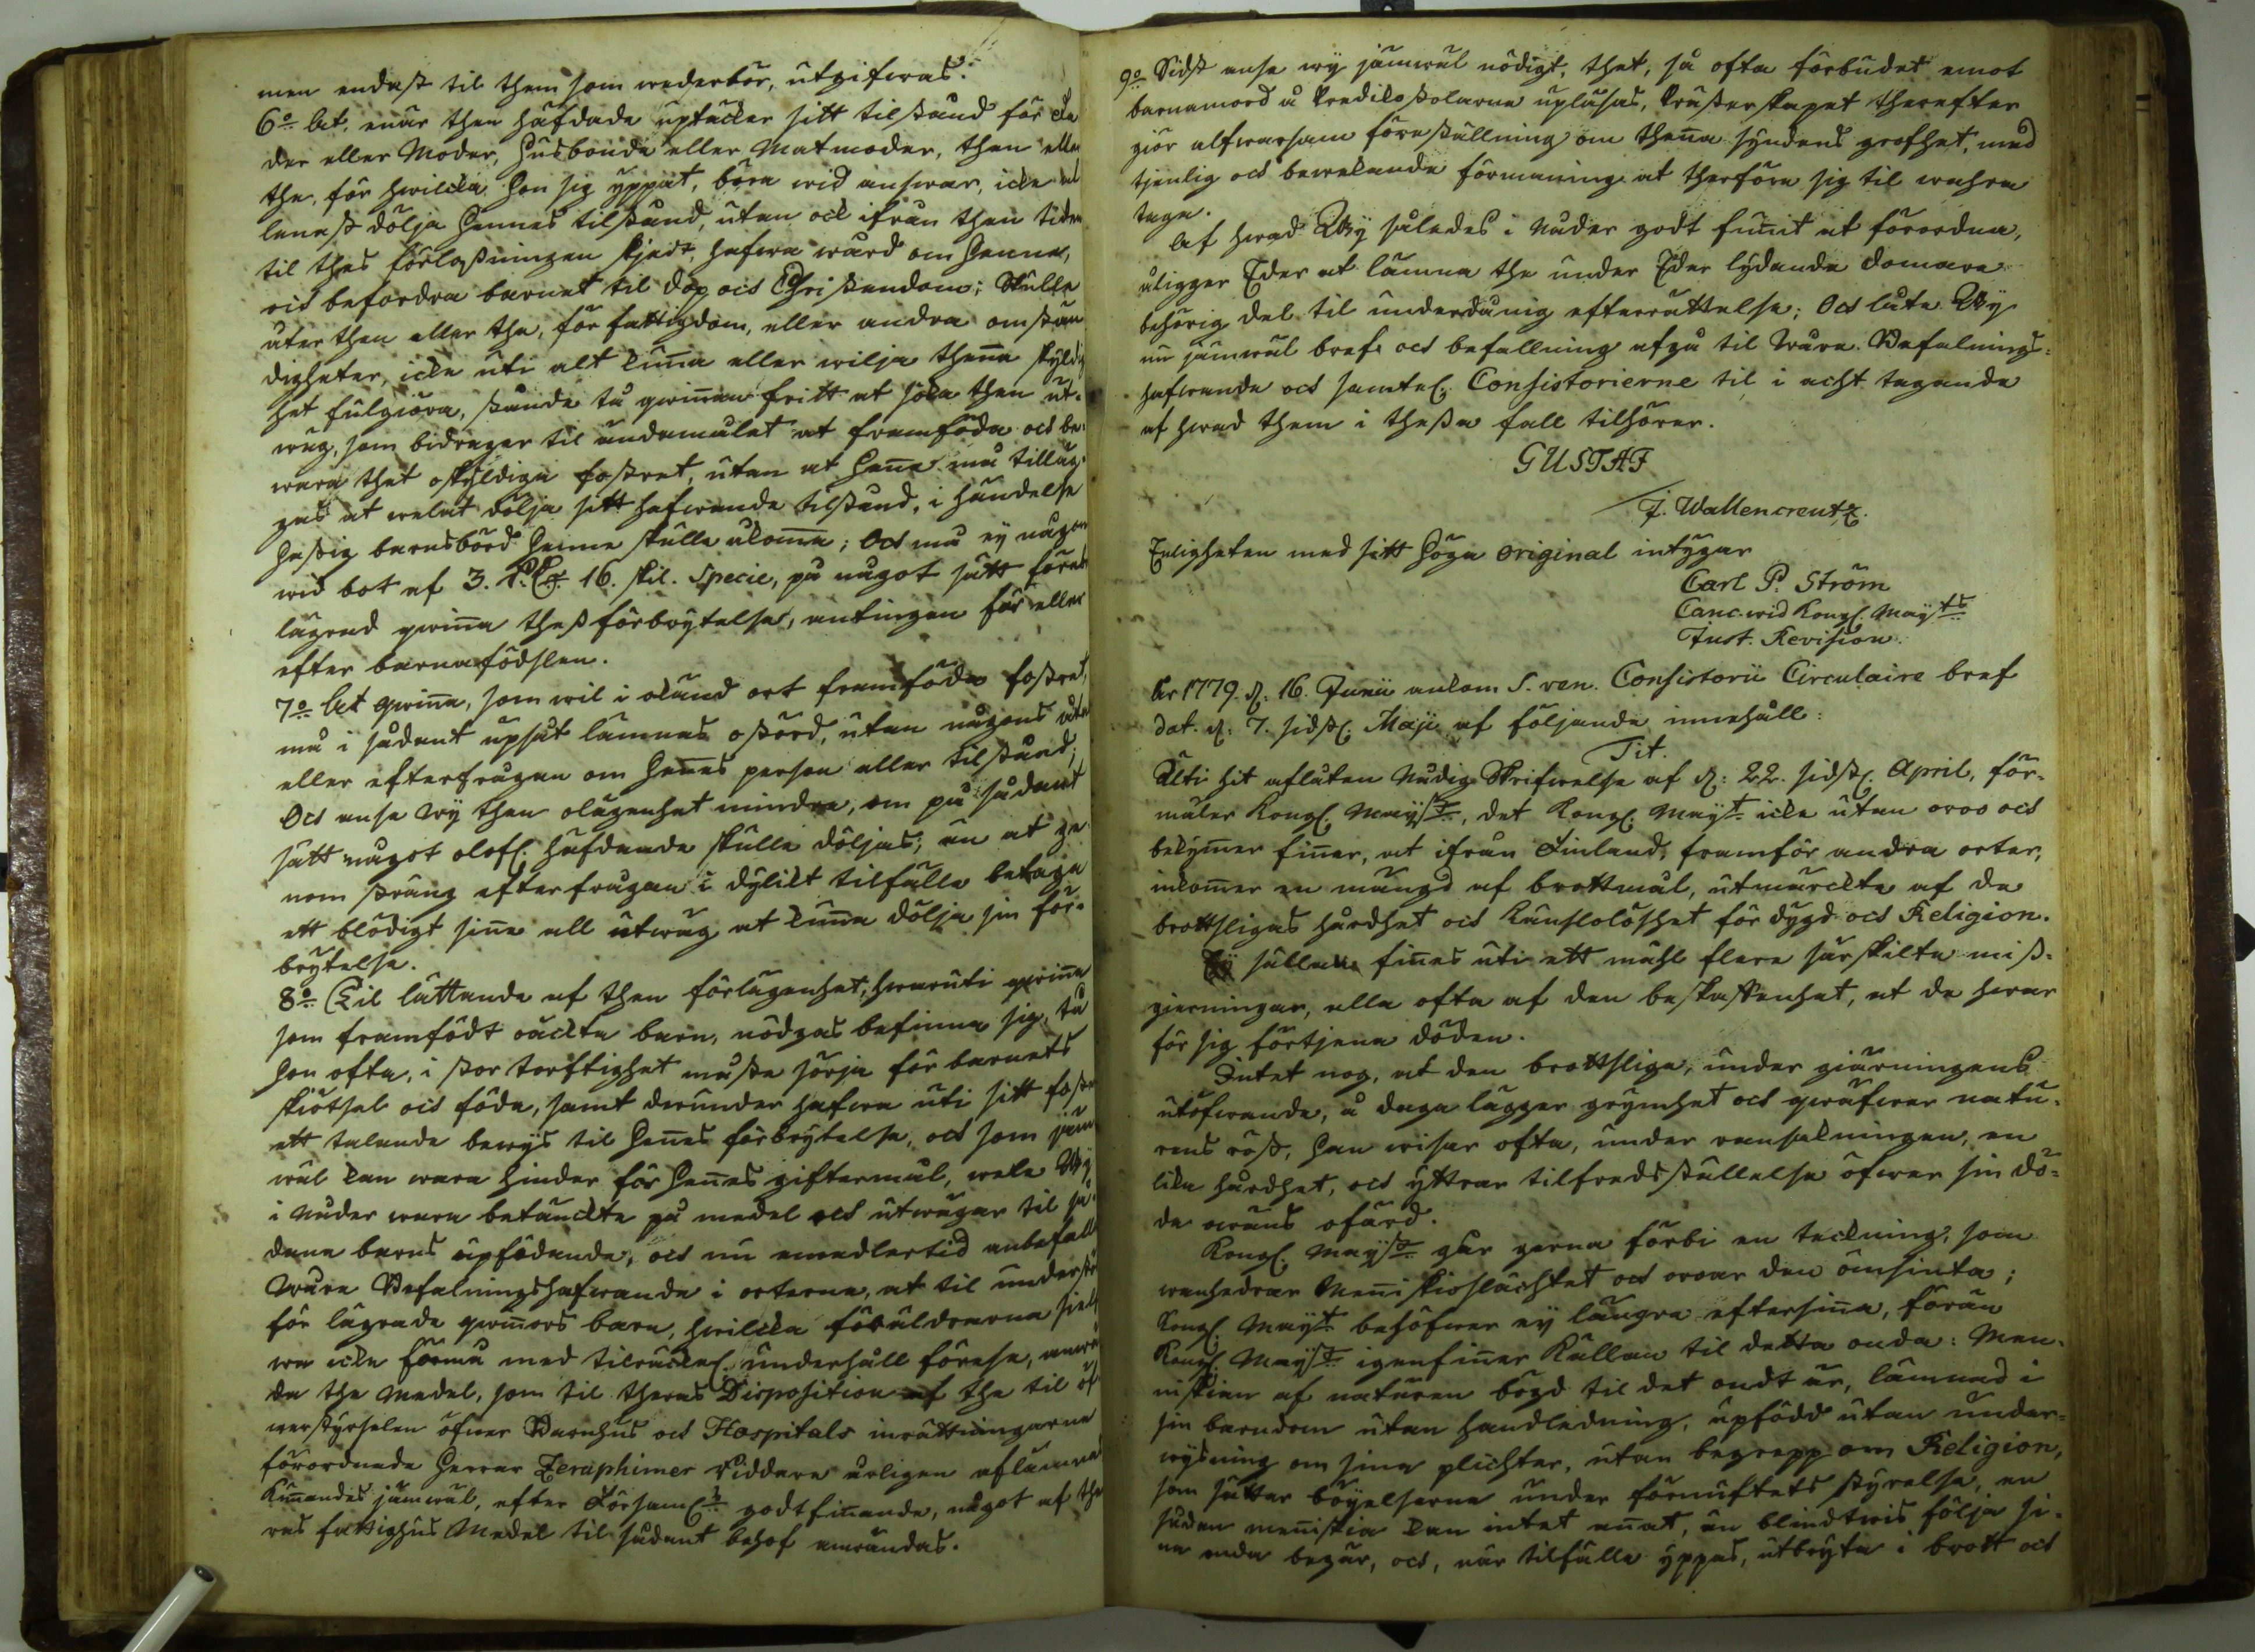 men endast til them som wederbör, utgifwas.
6:o At, enär then häfdade uptäcker sitt tilstånd för Fa
der eller Moder, Husbonde eller Matmoder, then eller
the, för hwilcka hon sig yppat, böra wid answar, icke al
lenast dölja hennes tilstånd, utan ock ifrån then tiden
til thes förlossningen skjedt, hafwa wård om henne,
och befordra barnet til dop och Christendom; Skulle
åter then eller the, för fattigdom, eller andra omstän
digheter, icke uti alt kuña eller wilja theña skyldig
het fulgöra, stånde tå qwiñan fritt at söka then ut-
wäg, som bidrager til ändamålet at framföda och be-
wara thet oskyldiga fostret, utan at heñe må tilläg-
gas at welat dölja sitt hafwande tilstånd, i händelse
hastig barnsbörd henne skulle åkomma; Och må ej någon
wid bot af 3. R:dr 16. skil. Specie, på något sätt förek
lägrad qwiña thess förbrytelse, antingen för eller
efter barnafödslen.
7:o At qwiña, som wil i okänd ort framföda fostret,
må i sådant upsåt lämnas ostörd, utan någons
eller efterfrågan om heñes person eller tilstånd;
Och anse Wij then olägenhet mindre, om på sådant
sätt något olofl. häfdande skulle döljas, än at ge
nom sträng efterfrågan i dylikt tilfälle betaga
ett blödigt siñe all utwäg at kuña dölja sin för-
brytelse.
8:o Til lättande af then förlägenhet, hwaruti qwiña
som framfödt oäckta barn, nödgas befinna sig, tå
hon ofta, i stor torftighet måste sörja för barnets
skiötsel och föda, samt derunder hafwa uti sitt foster
ett talande bewis til heñes förbrytelse, och som jäm
wäl kan wara hinder för heñes giftermål, wele Wij
i Nåder wara betänckte på medel och utwägar til så-
dane barns upfödande, och nu emedlertid anbefalle
Wåre Befalningshafwande i orterne, at til understöd
för lägrade qwiñors barn, hwilcka föräldrarna sielf
wa icke förmå med tilräckel. underhåll förese, anwä
da the Medel, som til theras Disposition af the til öf
werstyrselen öfwer Barnhus och Hospitals inrättningarne
förordnade Herrar Zeraphimer Riddare årligen aflämnas
Kuñandes jämwäl, efter Församl:s godtfiñande, något af the
ras fattighus Medel til sådant behof användas.
9:o Sidst anse wij jämwäl nödigt, thet, så ofta förbudet emot
barnamord å Predikostolarne upläsas, Präster skapet therefter
giör alfwarsam föreställning om theña syndens grofhet, med
tjenlig och bewekande förmaning at therföre sig til wahra
taga.
Af hwad Wij således i Nåder godt fuñit at förordna,
åligger Eder at lämna the under Eder lydande Domare
behörig del til underdånig efterrättelse; Och låte Wij
nu jämwäl bref och befallning afgå til Wåre Befalnings-
hafwande och samtel. Consistorierne til i acht tagande
af hwad them i thessa fall tilhörer.
GUSTAF
J. Wallencreutz.
Enligheten med sitt höga original intygar
Carl P. Ström
Canc. wid Kongl. Maij:ts
Just. Revision.
Ar 1779. d. 16. Junii ankom S. ven. Consistorii Circulaire bref
dat. d. 7. sidstl. Maji af följande innehåll:
Tit.
Uti hit aflåten Nådig Skrifwelse af d: 22. sidstl. April, för-
mäler Kongl. Maij:t, det Kongl. Maij:t icke utan oroo och
bekymer finer, at ifrån Finland, framför andra orter,
inkomer en mängd af brottmål, utmärckte af de
brottsligas hårdhet och Känslolöshet för dygd och Religion.
Ej sällan fiñes uti ett mahl flera särskilta miss-
gierningar, alla ofta af den beskaffenhet, at de hwar
för sig förtjena döden.
Intet nog, at den brottslige, under giärningens
utöfwande, å daga lägger grymhet och qwäfwer natu-
rens röst, han wisar ofta, under ransakningen, en
lika hårdhet, och yttrar tilfredsställelse öfwer sin dö-
de owäns ofärd.
Kongl. Maij:t går gerna förbi en teckning, som
wanhedrar Meñiskioslächtet och oroar den ömsinta;
Kongl. Maij:t behöfwer ej längre eftersiña, förän
Kongl. Maij:t igenfiner Källan til detta onda: Men-
niskian af naturen böjd til det ondt är, lämnad i
sin barndom utan handledning, upfödd utan under-
wisning om sina plichter, utan begrepp om Religion,
som sätter böjelserne under förnuftets styrelse, en
sådan meñiskia kan intet anat, än blindtwis följa si-
na onda begär, och, när tilfälle yppas, utbryta i brott och